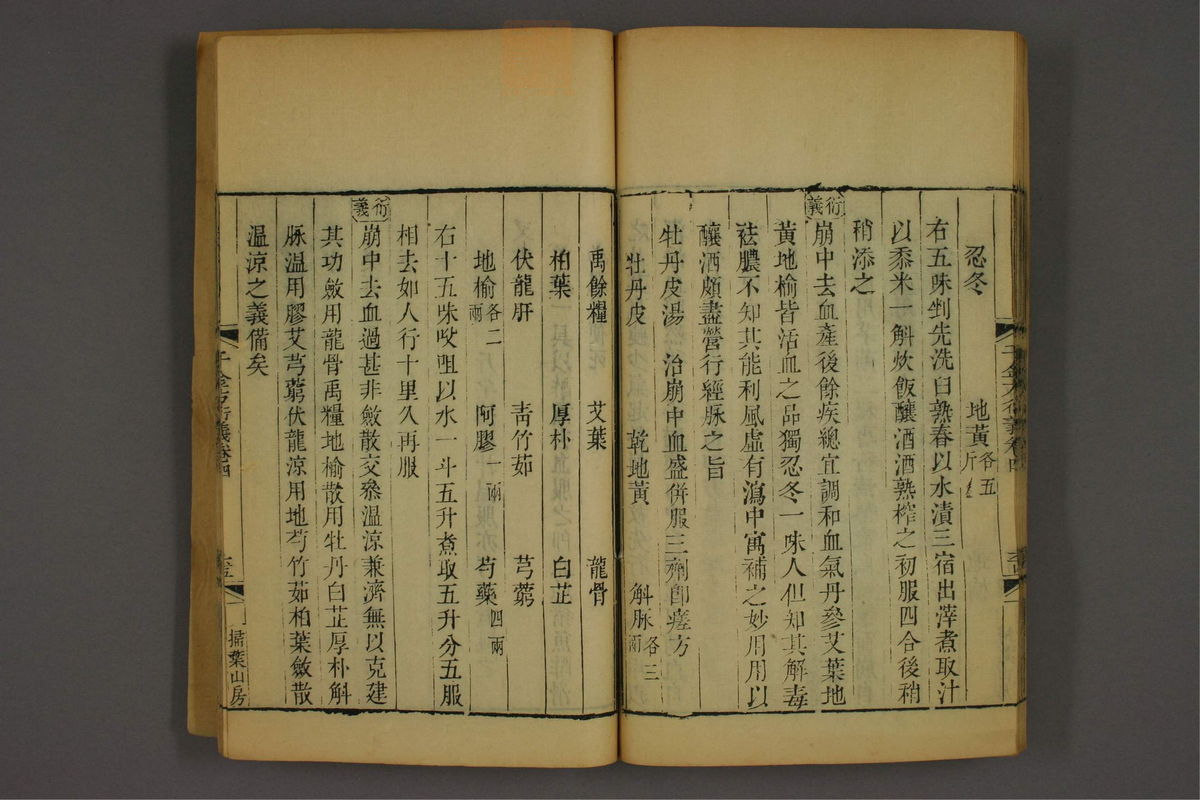 忍冬 地黃各五斤
右五味剉先洗臼熟舂以水漬三宿出滓煮取汁
以黍米一斛炊飯釀酒酒熟榨之初服四合後稍
稍添之
衍義
崩中去血產後餘疾總宜調和血氣丹參艾葉地
黃地榆皆活血之品獨忍冬一味人但知其解毒
祛膿不知其能利風虛有瀉中寓補之妙用用以
釀酒頗盡營行經脉之旨
牡丹皮湯 治崩中血盛併服三劑卽瘥方
牡丹皮 乾地黃 斛脉各三兩
禹餘糧 艾葉 龍骨
柏葉 厚朴 白芷
伏龍肝 靑竹茹 芎藭
地榆各二兩 阿膠一兩 芍藥四兩
右十五味㕮咀以水一斗五升煮取五升分五服
相去如人行十里久再服
衍義
崩中去血過甚非斂散交叅溫涼兼濟無以克建
其功斂用龍骨禹糧地榆散用牡丹白芷厚朴斛
脉溫用膠艾芎藭伏龍涼用地芍竹茹柏葉斂散
温涼之義備矣
千金方衍義卷四
掃葉山房